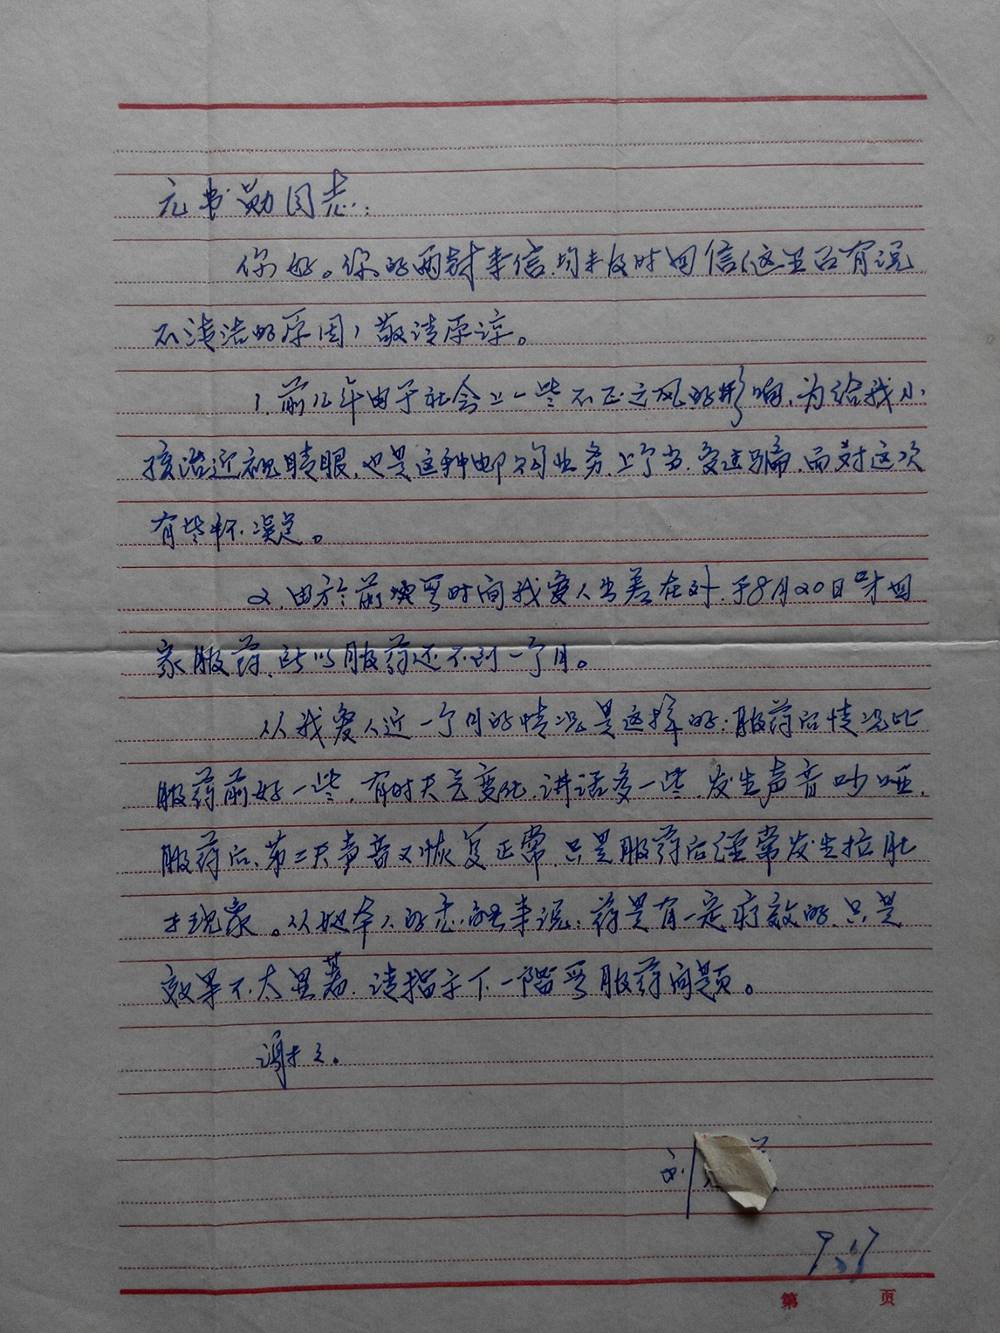 元书勋同志：
你好。你的两封来信，均未及时回信（这里面有说
不清洁的原因）敬请原谅。
1、前几年由于社会上一些不正之风的影响，为给我小
孩治近视眼睛，也是这种邮购业务，上了当，受过骗，而对这次
有些怀疑。
2、由於前段时间我爱人出差在外，于8月20日才回
家服药，所以服药还不到一个月。
从我爱人近一个月的情况是这样的：服药后情况比
服药前好一些，有时天气变化，讲话多一些，发生声音吵哑，
服药后、第二天声音又恢复正常，只是服药后经常发生拉肚
子现象。从她本人的态度来说：药是有一定疗效的，只是
效果不太显著，请指示下一阶段服药问题。
谢谢。
刘
9.17
第 页